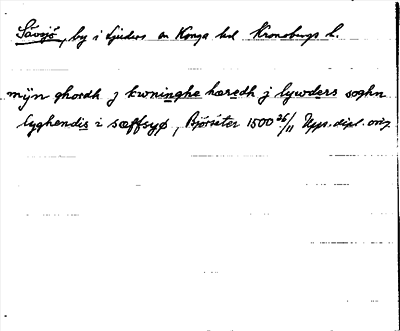 Sävsjö, by i Ljuders sn Konga hd Kronobergs l.
mijn ghordh j kwninghe hæredh j lywders soghn
lyghendis i sæffsyø, Björsäter 1500 26/11 Upps. dipl. orig.